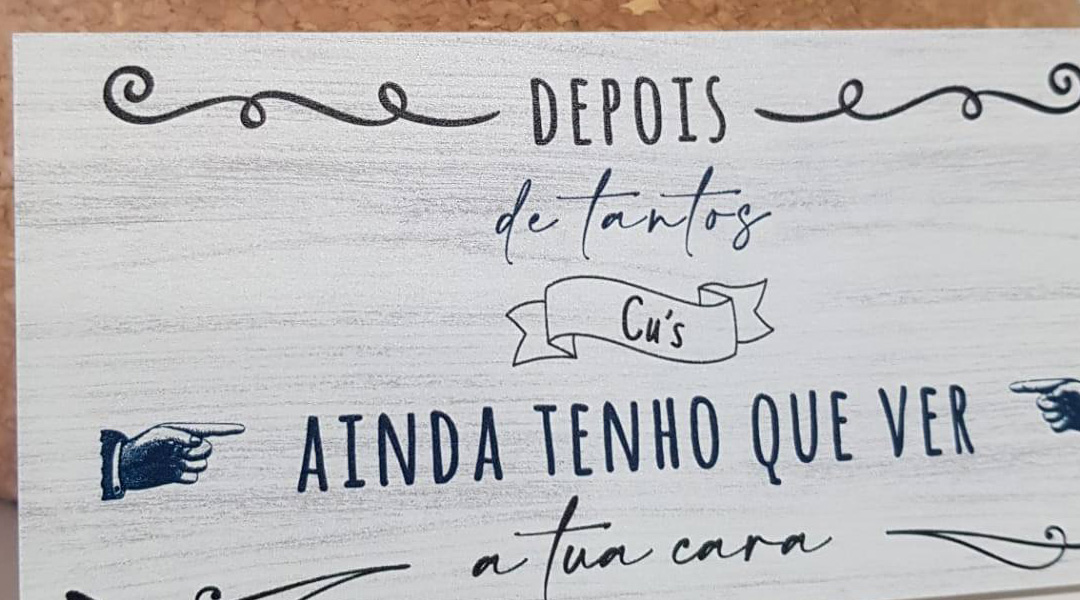 DEPOIS
de tantos
Cu's
AINDA TENHO QUE VER
a tua cara